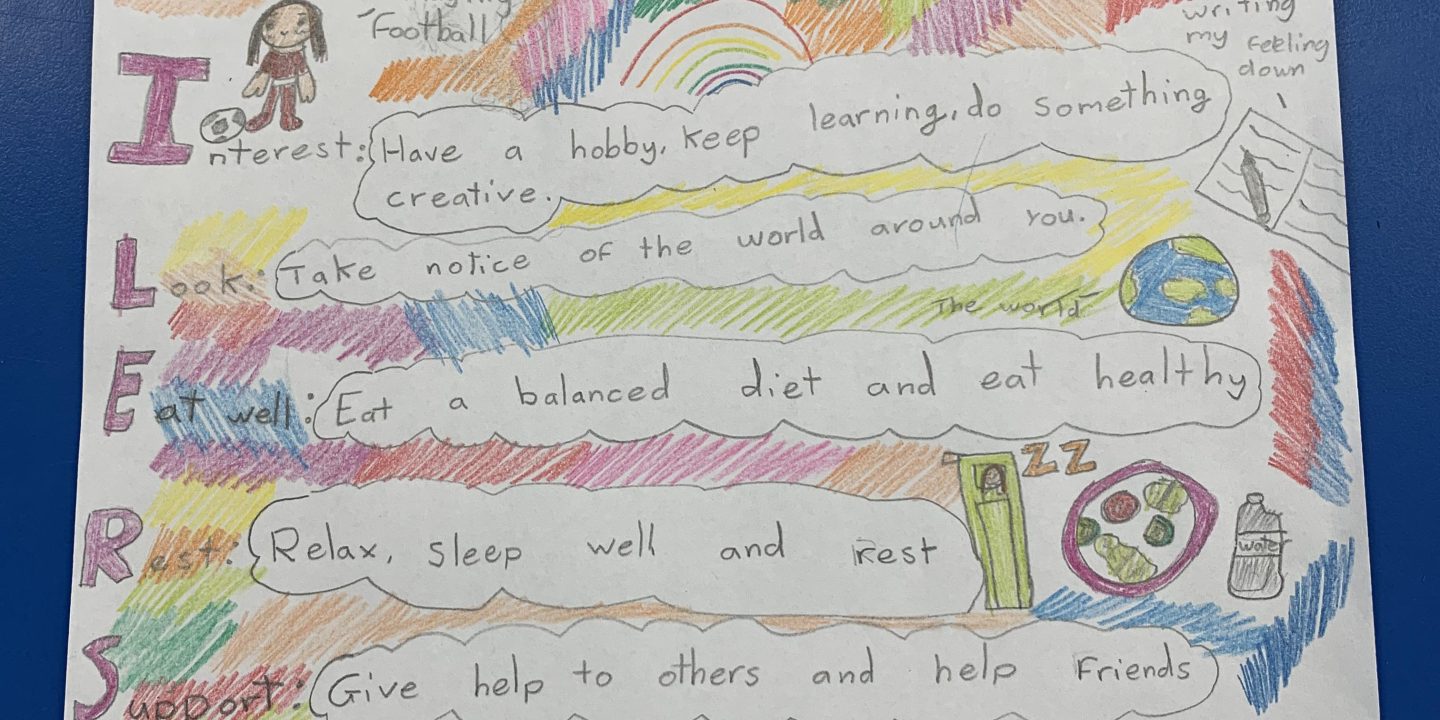 Football
writing
my Feeling
down
Interest: Have a hobby, keep learning, do something
creative.
Look: Take notice of the world around you.
The world
Eat well: Eat a balanced diet and eat healthy
ZZ
Rest: Relax, sleep well and rest
water
Support: Give help to others and help Friends